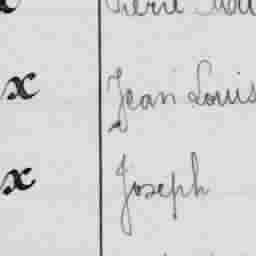 x Jean Louis
x Joseph